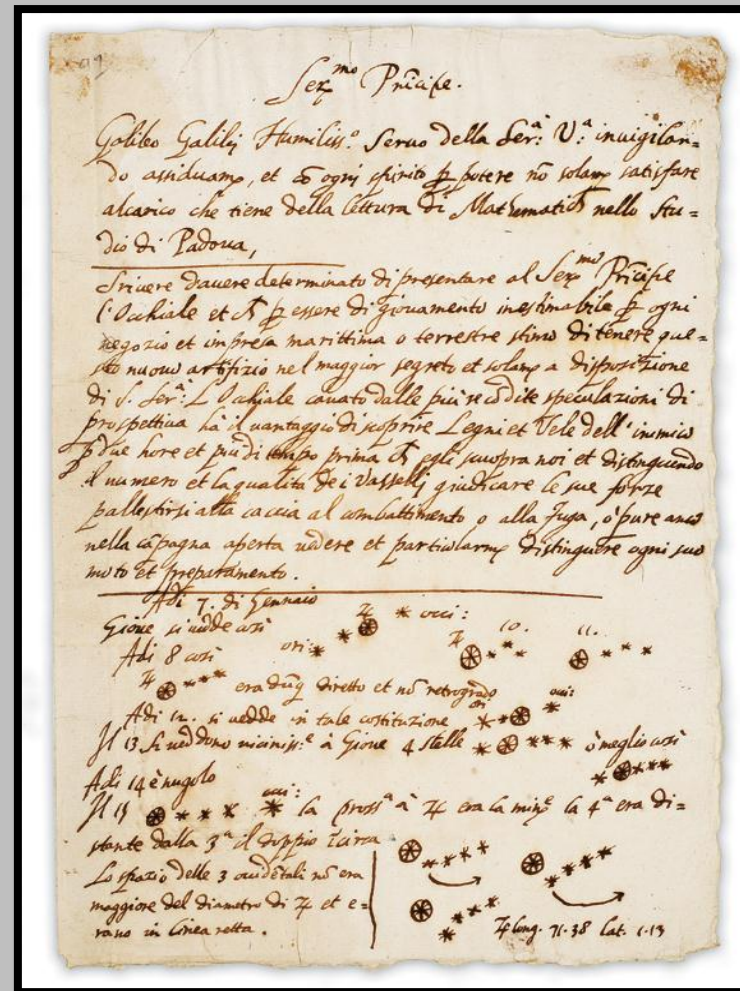 91
Serx.mo Pricipe.
Galileo Galilej Humiliss.o Seruo della Ser:a V:a inuigilan=
do assiduamx, et cō ogni spirito p potere nō solamx satisfare
alcarico che tiene della lettura di Mathematich nello Stu=
dio di Padoua,
Sriuere dauere determinato di presentare al Serx.mo Pricipe
l'Occhiale et ch p essere di giouamento inestimabile p ogni
negozio et impresa marittima o terrestre stimo di tenere que=
sto nuouo artifizio nel maggior segreto et solamx a disposizione
di S. Ser:a L'Occhiale cauato dalle più recōdite speculazioni di
prospettiua hà il uantaggio di scoprire Legni et Vele dell'inimico
p due hore et più di tempo prima ch egli scuopra noi et distinguendo
il numero et la qualità de i Vasselli giudicare le sue forze
pallestirsi alla caccia al combattimento o alla fuga, ò pure anco
nella cāpagna aperta uedere et particularmx distinguere ogni suo
moto et preparamento.
Adi 7. di Gennaio
Gioue si uedde così ♃ occi:
Adi 8 così ori: ♃ 10. 11.
♃ era dūq diretto et nō retrogrado
Adi 12. si uedde in tale costituzione ori: occi:
Il 13 si ueddono uiciniss:e à Gioue 4 stelle ò meglio così
Adi 14 è nugolo
Il 15 occi: la pross.a à ♃ era la min.e la 4.a era di=
stante dalla 3.a il doppio īcirca
Lo spazio delle 3 occidētali nō era
maggiore del diametro di ♃ et e=
rano in linea retta.
♃ long. 71.38 lat. 1.13